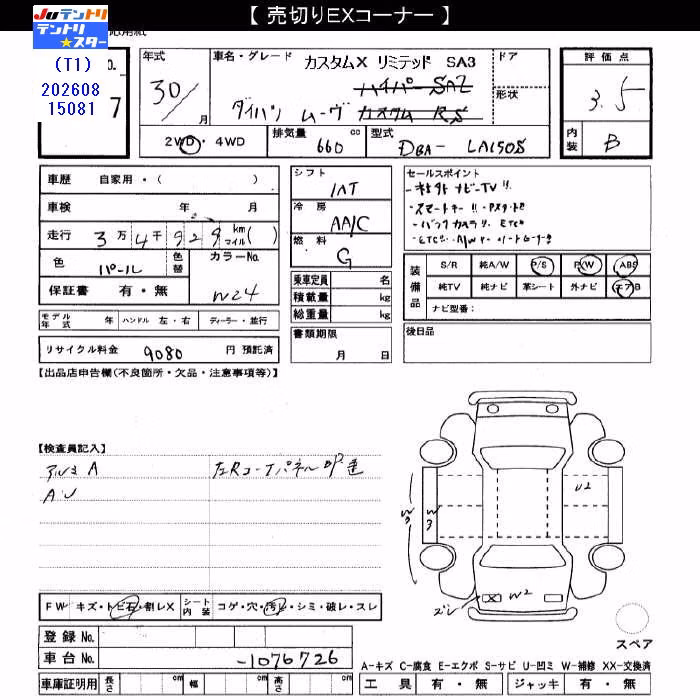 【 売切りEXコーナー 】
JUテントリ
テントリ★スター
(T1)
202608
15081
7
年式
30/
月
車名・グレード
カスタムX リミテッド SA3
ハイパー SAZ
ダイハツ ムーヴ カスタム RS
ドア
形状
評価点
3.5
内装
B
2WD・4WD
排気量
660
cc
型式
DBA- LA150S
車歴 自家用・( )
車検 年 月
走行 3万4千929 km マイル( )
色 パール
色替
カラーNo.
W24
保証書 有・無
シフト
IAT
冷房
AA/C
燃料
G
乗車定員 名
積載量 kg
総重量 kg
セールスポイント
・スマートキー !!
・バックカメラ !! ETC
装備品
S/R 純A/W P/S P/W ABS
純TV 純ナビ 革シート 外ナビ エアB
ナビ型番：
モデル年式 年 ハンドル 左・右 ディーラー・並行
書類期限
月 日
後日品
リサイクル料金 9080 円 預託済
【出品店申告欄(不良箇所・欠品・注意事項等)】
【検査員記入】
アルミ A
左Rコーナーパネル凹
AU
U2
W3
W3
W2
ズレ
X
FW キズ・トビ石・割レX
シート内装 コゲ・穴・汚レ・シミ・破レ・スレ
スペア
登録 No.
車台 No. -1076726
A-キズ C-腐食 E-エクボ S-サビ U-凹ミ W-補修 XX-交換済
車庫証明用 長さ cm 幅 cm 高さ cm
工具 有・無 ジャッキ 有・無